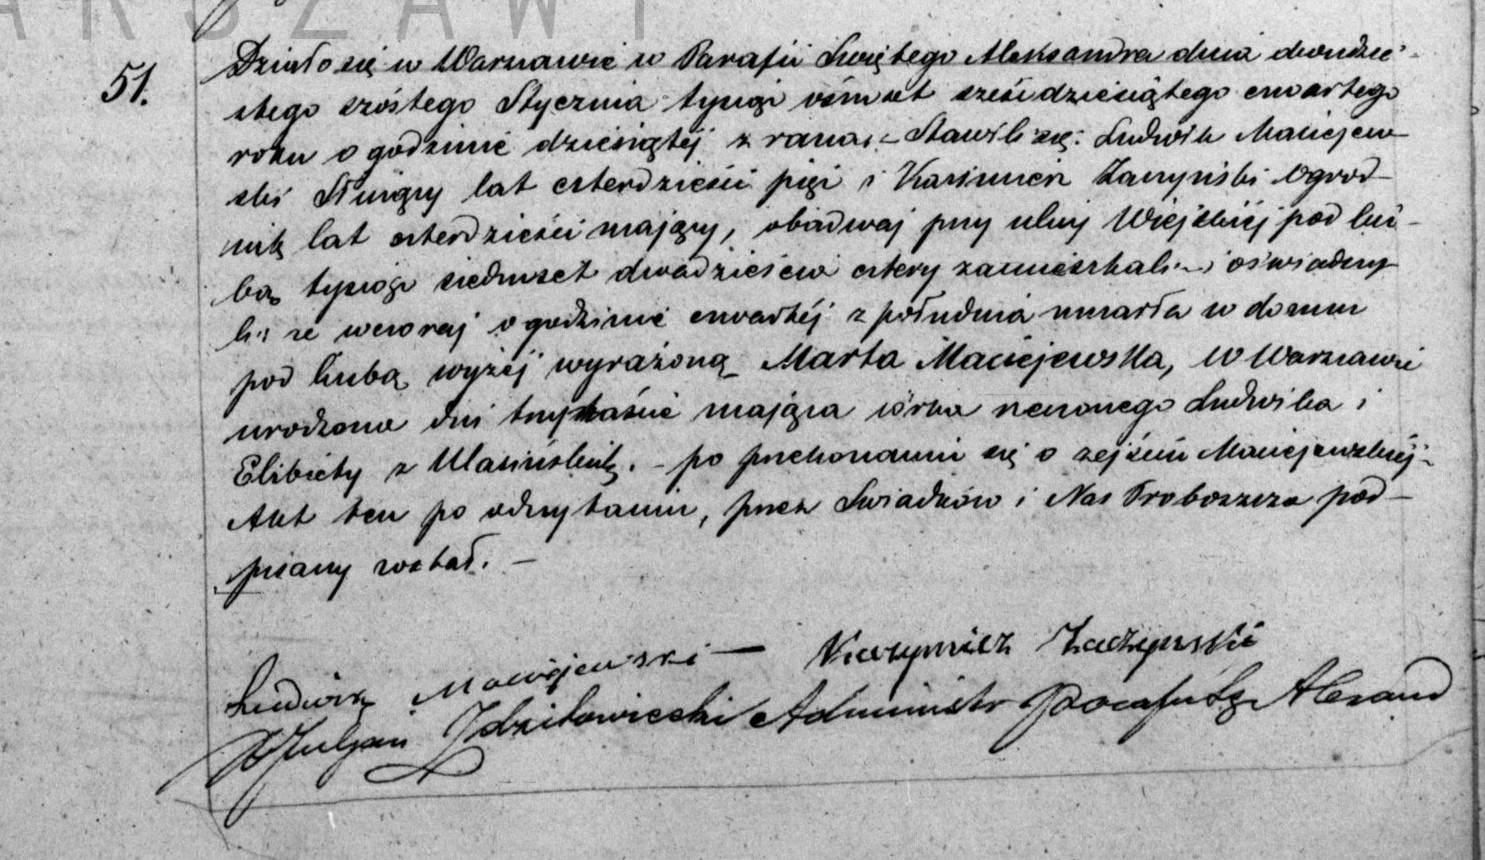 ARSZAWY
51.
Działo się w Warszawie w Parafii Świętego Aleksandra dnia dwudzie-
stego szóstego Stycznia tysiąc ósmset sześćdziesiątego czwartego
roku o godzinie dziesiątej z rana. – Stawili się: Ludwik Maciejew-
ski Służący lat czterdzieści pięć i Kazimierz Ogrod-
nik lat czterdzieści mający, obadwaj przy ulicy Wiejskiéj pod licz-
bą tysiąc siedmset dwadzieścia cztery zamieszkali – i oświadczy-
li: że wczoraj o godzinie czwartéj z południa umarła w domu
pod liczbą wyżéj wyrażoną Marta Maciejewska, w Warszawie
urodzona dni trzynaście mająca córka rzeczonego Ludwika i
Elżbiety z. – po przekonaniu się o zejściu Maciejewskiéj –
Akt ten po odczytaniu, przez Świadków i Nas Proboszcza pod-
pisany został. –
Ludwik Maciejewski – Kazymierz
X Juljan Administr Parafii Sgo Alexand